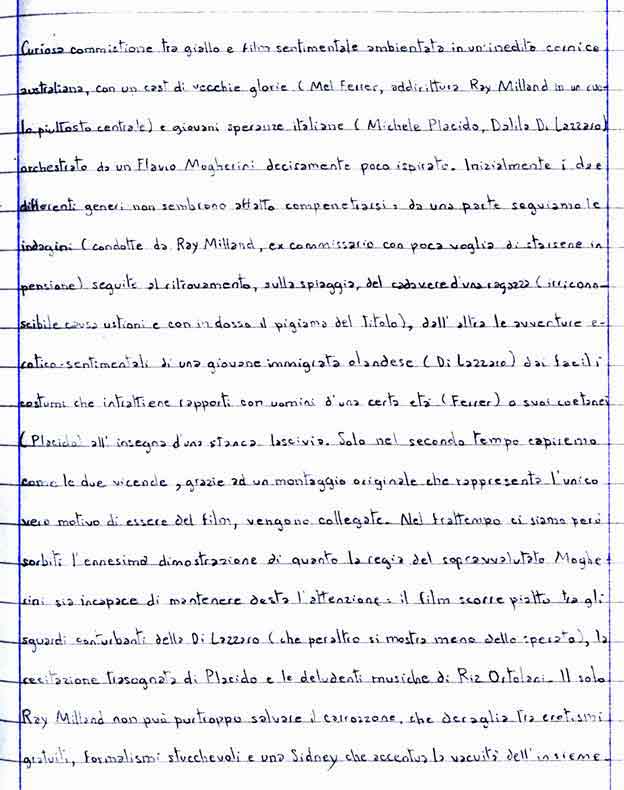 Curiosa commistione tra giallo e film sentimentale ambientata in un'inedita cornice
australiana, con un cast di vecchie glorie (Mel Ferrer, addirittura Ray Milland in un ruo-
lo piuttosto centrale) e giovani speranze italiane (Michele Placido, Dalila Di Lazzaro)
orchestrato da un Flavio Mogherini decisamente poco ispirato. Inizialmente i due
differenti generi non sembrano affatto compenetrarsi: da una parte seguiamo le
indagini (condotte da Ray Milland, ex commissario con poca voglia di starsene in
pensione) seguite al ritrovamento, sulla spiaggia, del cadavere d'una ragazza (irricono-
scibile causa ustioni e con indosso il pigiama del titolo), dall'altra le avventure e-
rotico-sentimentali di una giovane immigrata olandese (Di Lazzaro) dai facili
costumi che intrattiene rapporti con uomini d'una certa età (Ferrer) o suoi coetanei
(Placido) all'insegna d'una stanca lascivia. Solo nel secondo tempo capiremo
come le due vicende, grazie ad un montaggio originale che rappresenta l'unico
vero motivo di essere del film, vengono collegate. Nel frattempo ci siamo però
sorbiti l'ennesima dimostrazione di quanto la regia del sopravvalutato Moghe-
rini sia incapace di mantenere desta l'attenzione: il film scorre piatto tra gli
sguardi conturbanti della Di Lazzaro (che peraltro si mostra meno dello sperato), la
recitazione trasognata di Placido e le deludenti musiche di Riz Ortolani. Il solo
Ray Milland non può purtroppo salvare il carrozzone, che deraglia tra erotismi
gratuiti, formalismi stucchevoli e una Sidney che accentua la vacuità dell'insieme.